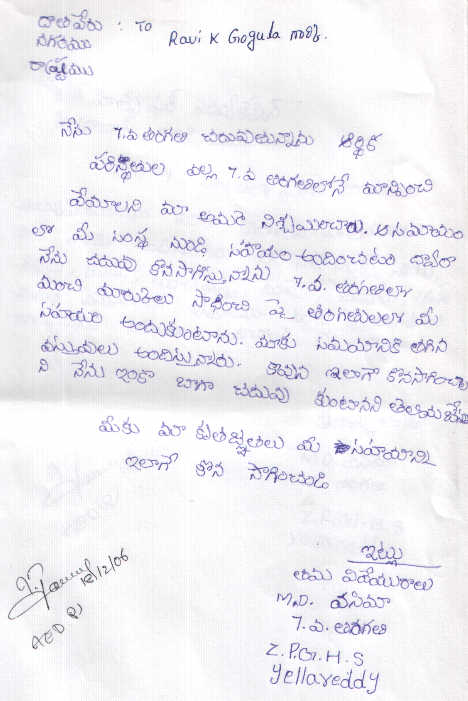 దాత పేరు : TO Ravi K Gogula గారికి.
నగరము
రాష్ట్రము
నేను 7.వ తరగతి చదువుతున్నాను ఆర్థిక
పరిస్థితుల వల్ల 7.వ తరగతిలోనే మాన్పించి
వేయాలని మా అమ్మ నిశ్చయించారు. ఆ సమయం
లో మీ సంస్థ నుండి సహాయం అందించటం ద్వారా
నేను చదువు కొనసాగిస్తున్నాను 7.వ. తరగతిలో
మంచి మార్కులు సాధించి పై తరగతులలో మీ
సహాయం అందుకుంటాను. మాకు సమయానికి తగిన
వస్తువులు అందిస్తున్నారు. కావున ఇలాగే కొనసాగించా
ని నేను ఇంకా బాగా చదువు కుంటానని తెలియజేస
మీకు మా కృతజ్ఞతలు మీ సహాయాన్ని
ఇలాగే కొన సాగించండి
ఇట్లు
తమ విధేయురాలు
M.D. వసీమా
7.వ. తరగతి
Z.P.G.H.S
Yellareddy
18/12/06